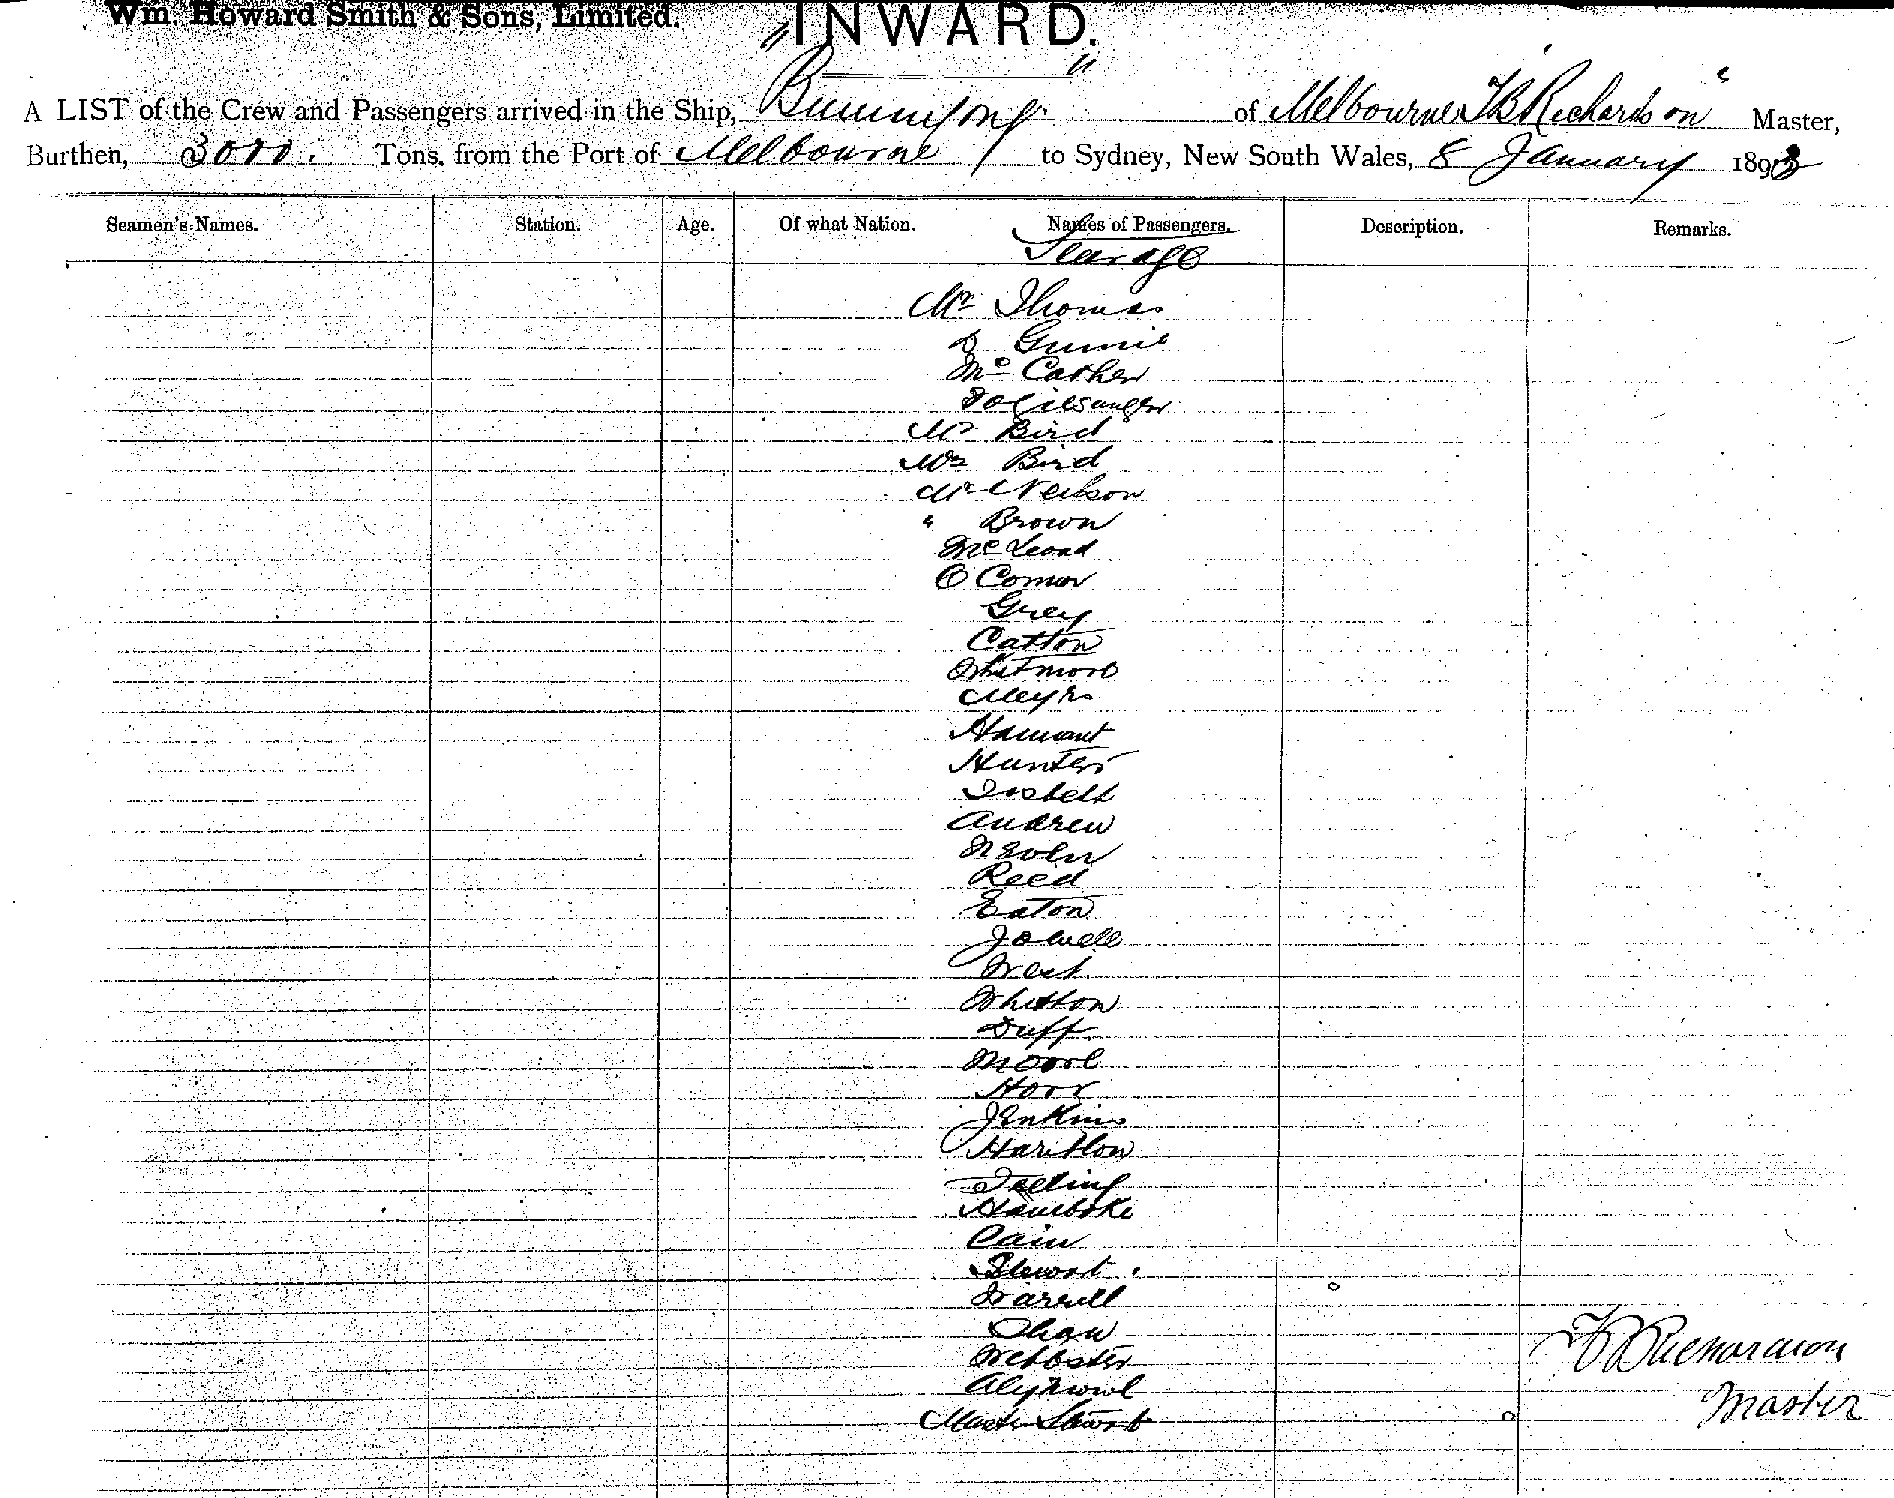 Wm. Howard Smith & Sons, Limited.
INWARD.
A LIST of the Crew and Passengers arrived in the Ship, "Buninyong" of Melbourne TB Richardson Master,
Burthen, 3000. Tons. from the Port of Melbourne to Sydney, New South Wales, 8 January 1893
Seamen's Names. Station. Age. Of what Nation. Names of Passengers. Description. Remarks.
Stearage
Mr Thomas
D
Mc
Mr Bird
Mrs Bird
Mr Neilson
" Brown
McLeoad
O Connor
Grey
Catton
Whitmore
Meyrs
Hamant
Hunter
Isobell
Andrew
Reed
Eaton
Jowell
West
Whitton
Duff
Moore
Hoor
Jenkins
Cain
Stewart
Warrell
Shaw
Webbster
Master Stewart
TB Richardson
Master